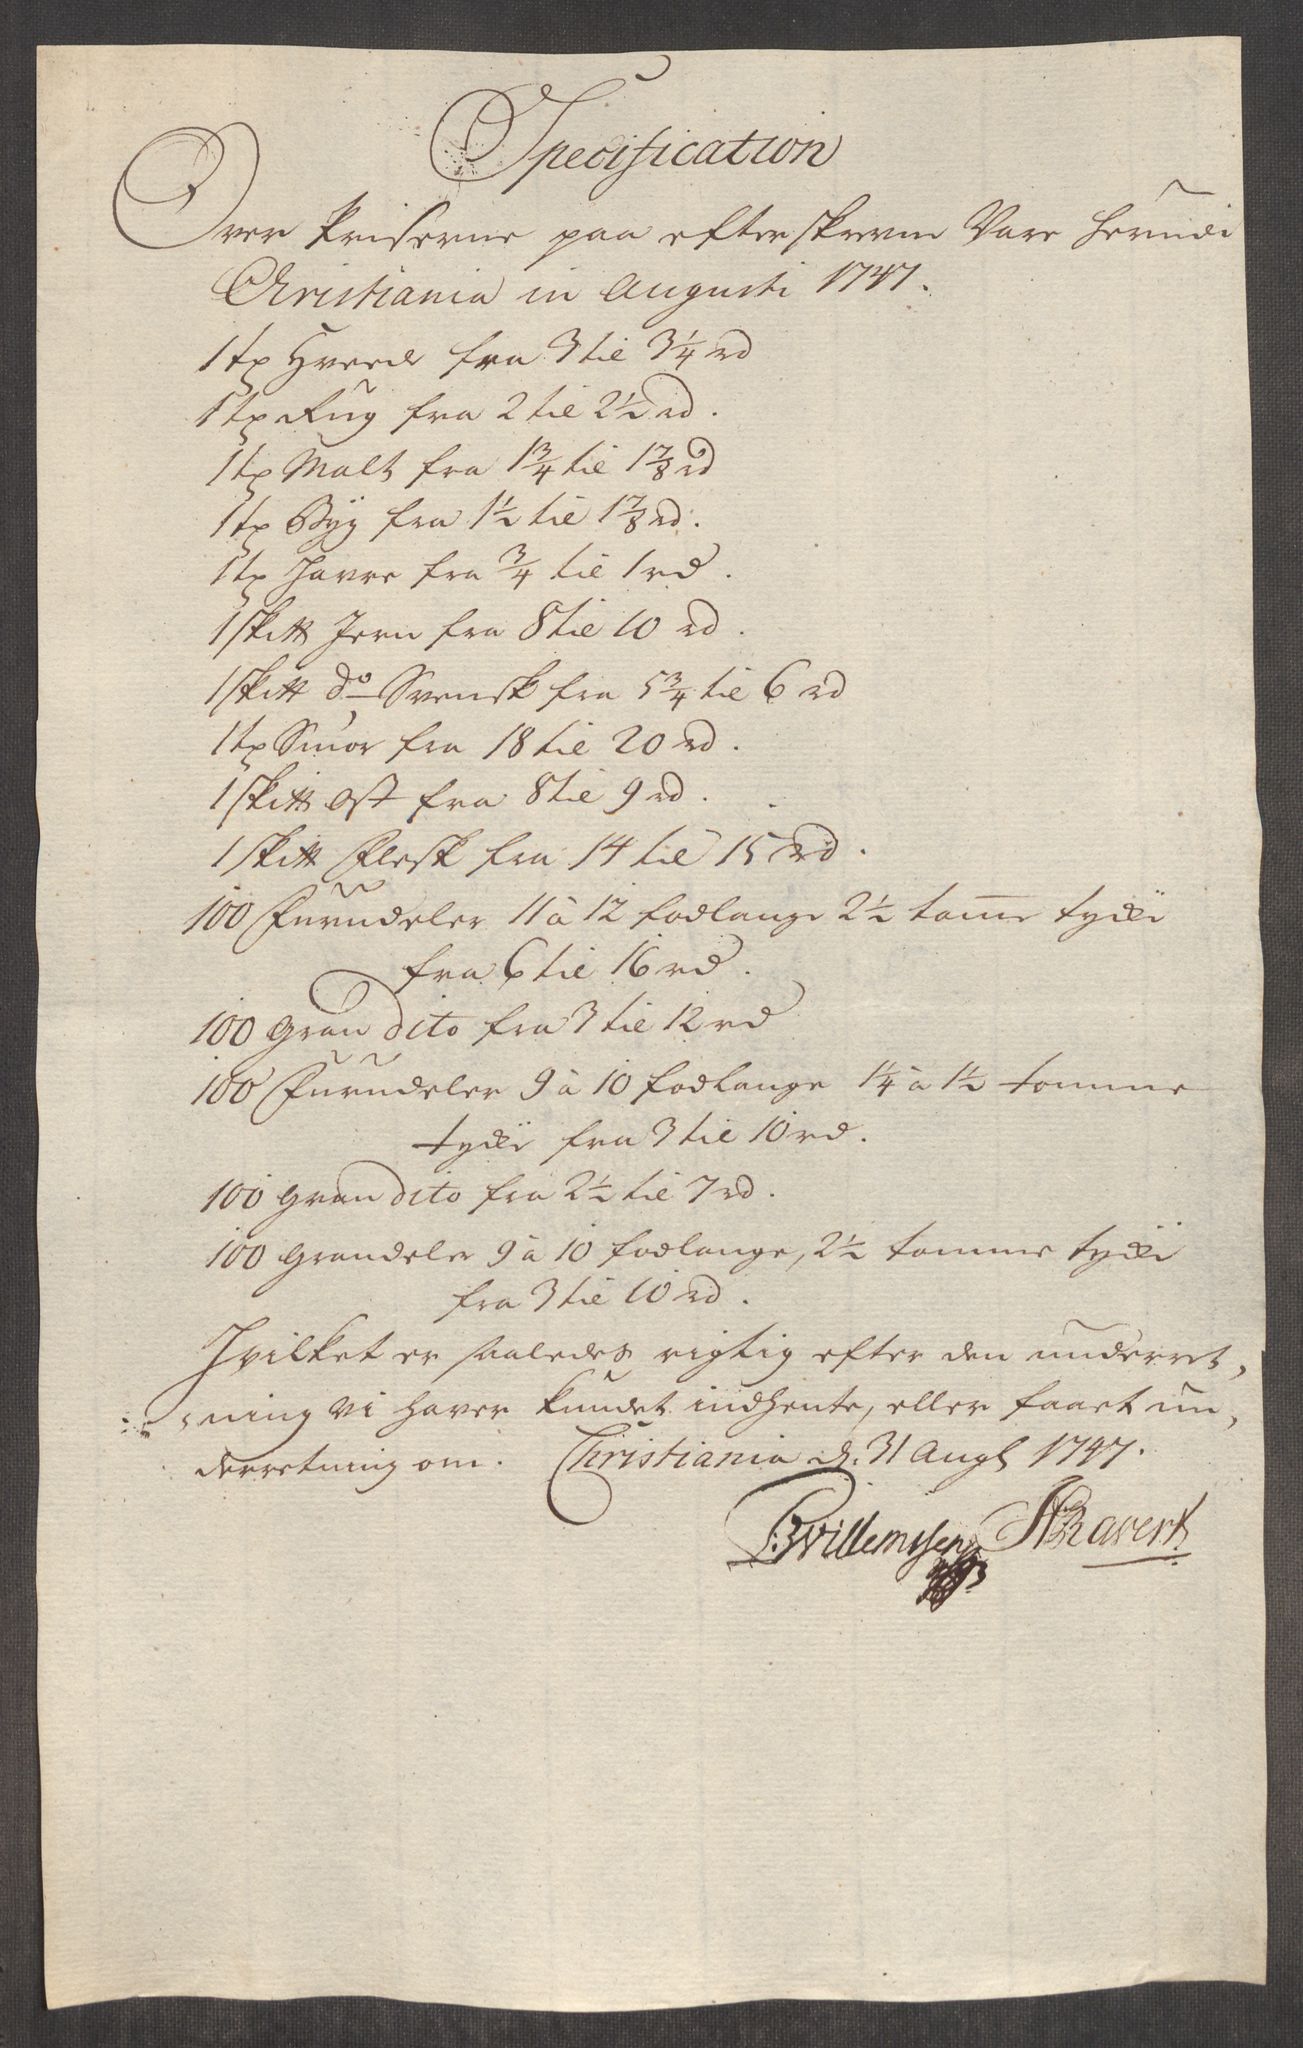 Specification
Over Priserne paa efterskrevne Vare herudi
Christiania in Augusti 1747.
1 tr Hvede fra 3 til 3¼ rd
1 tr Rug fra 2 til 2½ rd.
1 tr Malt fra 1¾ til 1⅞ rd
1 tr Byg fra 1½ til 1⅞ rd.
1 tr Havre fra ¾ til 1 rd.
1 sk℔ Jern fra 8 til 10 rd.
1 sk℔ do Svensk fra 5¾ til 6 rd
1 tr Smør fra 18 til 20 rd.
1 sk℔ Ost fra 8 til 9 rd.
1 sk℔ Flesk fra 14 til 15 rd.
100 Furudeler 11 à 12 fodlange 2½ tome tycke
fra 6 til 16 rd.
100 Gran dito fra 3 til 12 rd
100 Furudeler 9 à 10 fodlange 1¼ à 1½ tomme
tycke fra 3 til 10 rd.
100 Gran dito fra 2½ til 7 rd.
100 Grandeler 9 à 10 fodlange, 2½ tomme tycke
fra 3 til 10 rd.
Hvilket er saaledes rigtig efter den underret,
ning vi haver kundet indhente, eller faaet un,
derretning om. Christiania d. 31 Aug 1747.
Willemssen Ravert